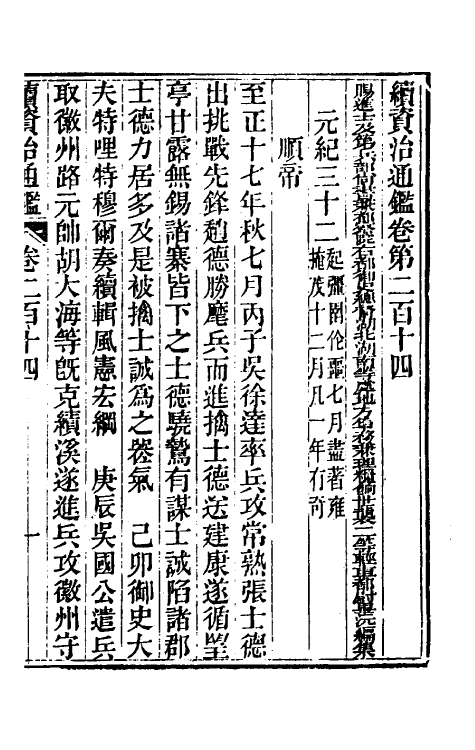 續資治通鑑卷第二百十四
賜進士及第兵部尚書兼都察院右都御史總督湖北湖南等處地方軍務兼理糧餉世襲二等輕車都尉畢沅編集
元紀三十二起彊圉作噩七月盡著雍
掩茂十二月凡一年有奇
順帝
至正十七年秋七月丙子吳徐達率兵攻常熟張士德
出挑戰先鋒趙德勝麾兵而進擒士德送建康遂循望
亭甘露無錫諸寨皆下之士德驍鷙有謀士誠陷諸郡
士德力居多及是被擒士誠爲之喪氣　己卯御史大
夫特哩特穆爾奏續輯風憲宏綱　庚辰吳國公遣兵
取徽州路元帥胡大海等旣克績溪遂進兵攻徽州守
續資治通鑑　卷二百十四　一